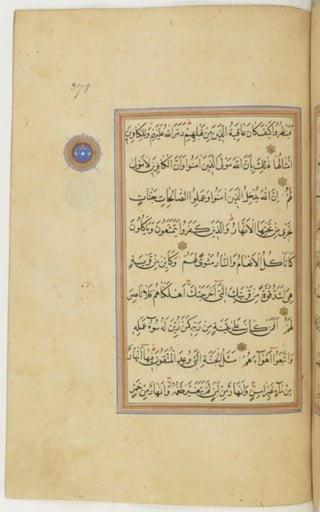 ٣٧٨
فينظروا كيف كان عاقبة الذين من قبلهم دمر الله عليهم وللكافرين
امثالها ذلك بان الله مولى الذين امنوا وان الكافرين لا مولى
لهم ان الله يدخل الذين امنوا وعملوا الصالحات جنات
تجري من تحتها الانهار والذين كفروا يتمتعون وياكلون
كما تاكل الانعام والنار مثوى لهم وكاين من قرية
هي اشد قوة من قريتك التي اخرجتك اهلكناهم فلا ناصر
لهم افمن كان على بينة من ربه كمن زين له سوء عمله
واتبعوا اهواءهم مثل الجنة التي وعد المتقون فيها انهار
من ماء غير اسن وانهار من لبن لم يتغير طعمه وانهار من خمر